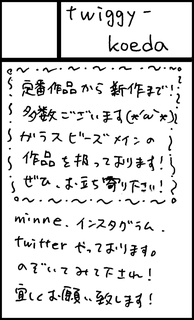 twiggy-
koeda
定番作品から新作まで!
多数ございます(*´ω`*)
ガラスビーズメインの
作品を扱っております!
ぜひ、お立ち寄り下さい!
minne、インスタグラム、
twitterやっております。
のぞいてみて下され!
宜しくお願い致します!